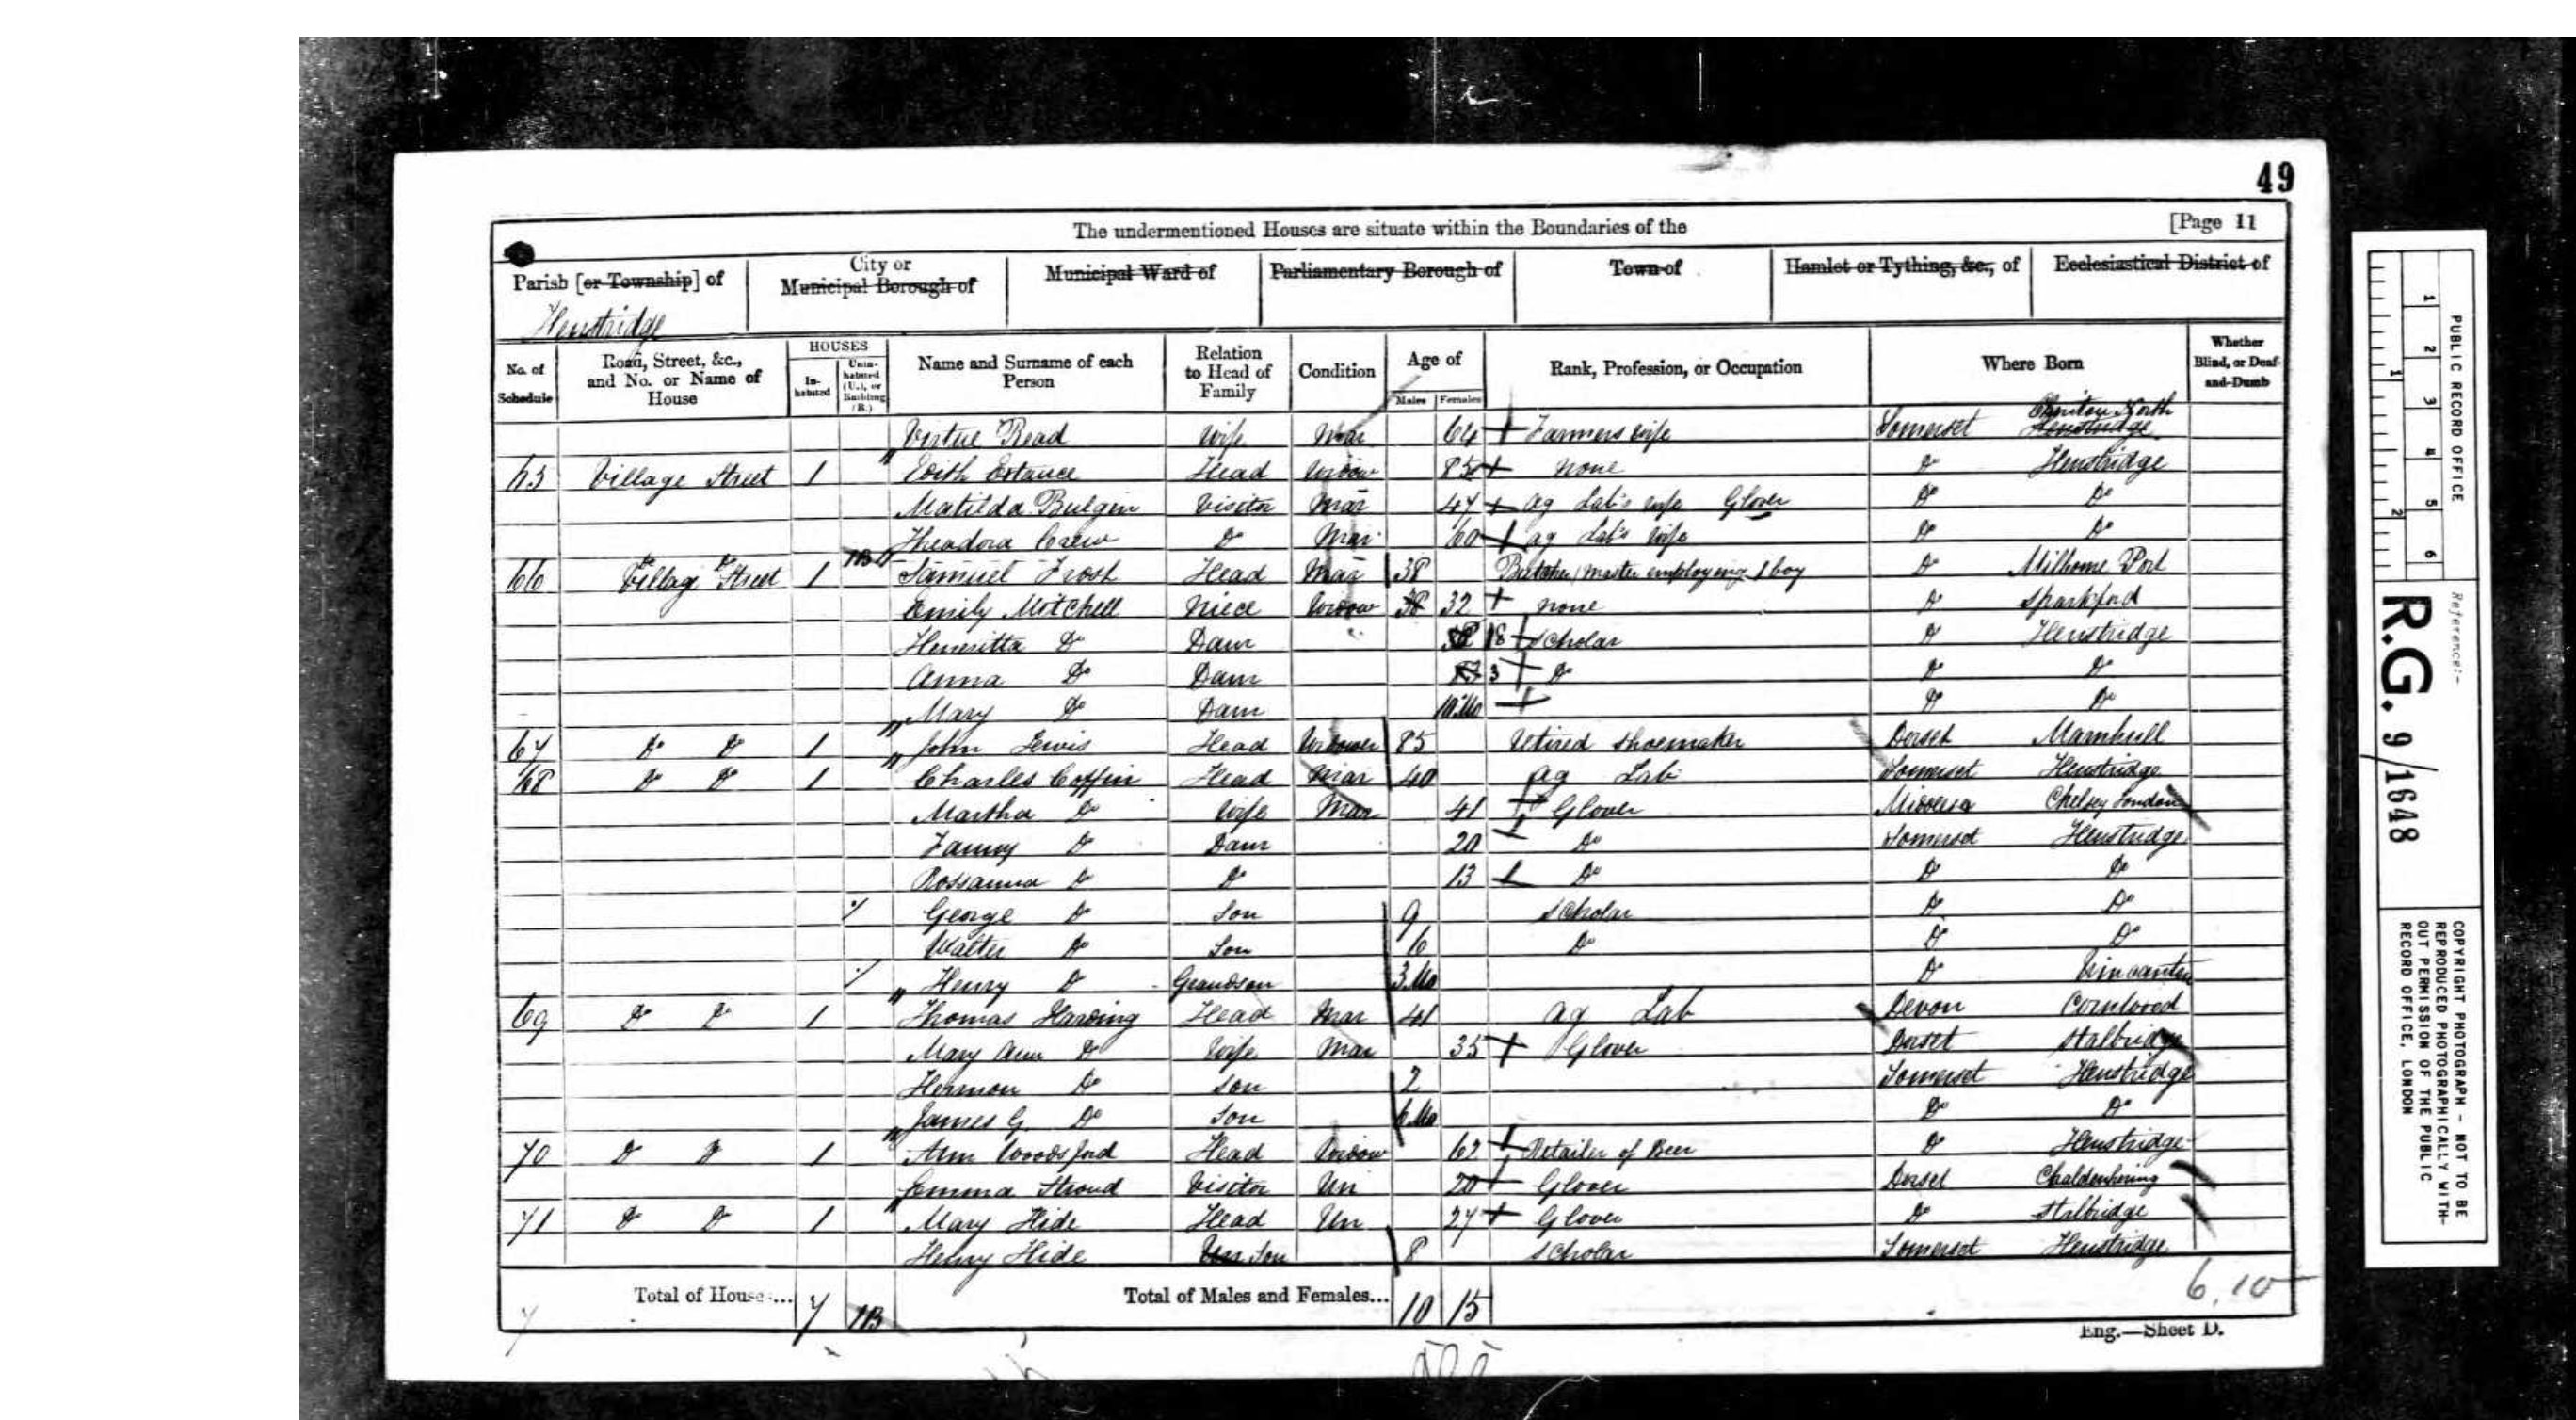 49
The undermentioned Houses are situate within the Boundaries of the [Page 11
Parish [or Township] of
City or Municipal Borough of
Municipal Ward of
Parliamentary Borough of
Town of
Hamlet or Tything, &c., of
Ecclesiastical District of
Henstridge
No. of Schedule
Road, Street, &c., and No. or Name of House
HOUSES
In-habited
Unin-habited (U.), or Building (B.)
Name and Surname of each Person
Relation to Head of Family
Condition
Age of
Males Females
Rank, Profession, or Occupation
Where Born
Whether Blind, or Deaf-and-Dumb
Cheriton North
Virtue Read Wife Mar 64 Farmers wife Somerset Henstridge
65 Village Street 1 Edith Estance Head Widow 85 None Do Henstridge
Matilda Bulgin Visitor Mar 47 Ag Lab's wife Glover Do Do
Theadora Crew Do Mar 60 Ag Lab's wife Do Do
66 Village Street 1 1B Samuel Frost Head Mar 38 Butcher / Master employing 1 boy Do Milborne Port
Emily Mitchell Niece Widow 38 32 None Do Sparkford
Henritta Do Daur 8 Scholar Do Henstridge
Anna Do Daur 3 Do Do Do
Mary Do Daur 10 Mo Do Do
67 Do Do 1 John Lewis Head Widower 85 Retired Shoemaker Dorset Marnhull
68 Do Do 1 Charles Coffin Head Mar 40 Ag Lab Somerset Henstridge
Martha Do Wife Mar 41 Glover Middlesex Chelsey London
Fanny Do Daur 20 Do Somerset Henstridge
Rossanna Do Do 13 Do Do Do
George Do Son 9 Scholar Do Do
Walter Do Son 6 Do Do Do
Henry Do Grandson 3 Mo Do Wincanton
69 Do Do 1 Thomas Harding Head Mar 41 Ag Lab Devon
Mary Ann Do Wife Mar 35 Glover Dorset Stalbridge
Hermon Do Son 2 Somerset Henstridge
James G. Do Son 6 Mo Do Do
70 Do Do 1 Ann Woodsford Head Widow 62 Retailer of Beer Do Henstridge
Emma Stroud Visitor Un 20 Glover Dorset
71 Do Do 1 Mary Hide Head Un 27 Glover Do Stalbridge
Henry Hide Son 8 Scholar Somerset Henstridge
6.10
Total of Houses... 7 1B Total of Males and Females... 10 15
Eng.—Sheet D.
PUBLIC RECORD OFFICE
1 2 3 4 5 6
1 2
Reference:-
R.G. 9/1648
COPYRIGHT PHOTOGRAPH - NOT TO BE
REPRODUCED PHOTOGRAPHICALLY WITH-
OUT PERMISSION OF THE PUBLIC
RECORD OFFICE, LONDON